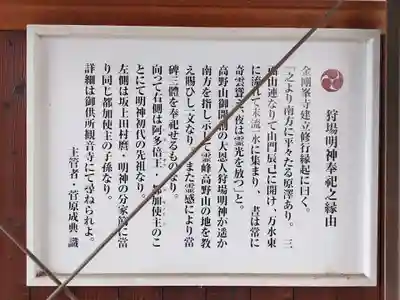 狩場明神奉祀之縁由
金剛峯寺建立修行縁起に曰く。
「之より南方に平々たる原澤あり。三
面山連なりて山門辰巳に開け、万水東
に流れて末流一水に集まり、昼は常に
奇雲聳え夜は霊光を放つ」と。
高野山御開創の大恩人狩場明神が遥か
南方を指し示して霊峰高野山の地を教
え賜ひし一文なり。また霊感により當
碑三體を奉祀せるものなり。
向って右側は阿多倍王・都加使主のこ
とにて明神初代の先祖なり。
左側は坂上田村麿・明神の分家筋に當
り同じ都加使主の子孫なり。
詳細は御供所観音寺にて尋ねられよ。
主管者・菅原成典 識